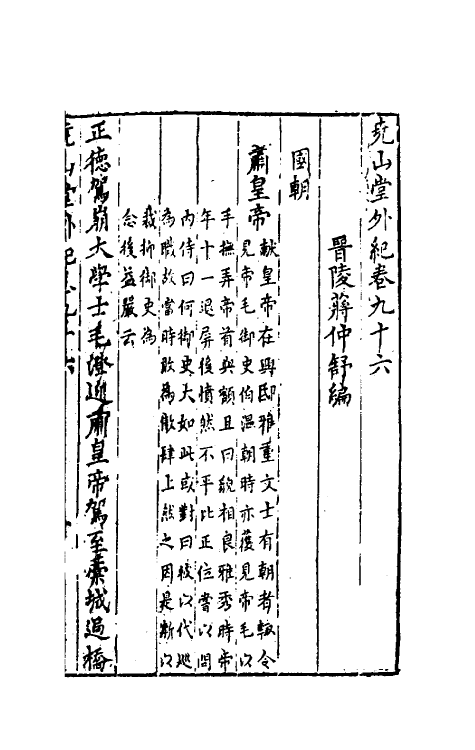 堯山堂外紀卷九十六
晉陵蔣仲舒編
國朝
肅皇帝
獻皇帝在興邸雅重文士有朝者輒令
見帝毛御史伯溫朝時亦獲見帝毛以
手撫弄帝首與額且曰貌相良雅秀時帝
年十一退屏後憤然不平比正位嘗以問
內侍曰何御史大如此或對曰彼以代巡
為職故當時敢為傲肆上然之因是漸以
裁抑御史為
念後益嚴云
正德駕崩大學士毛澄迎肅皇帝駕至藁城過橋
堯山堂外紀卷九十六